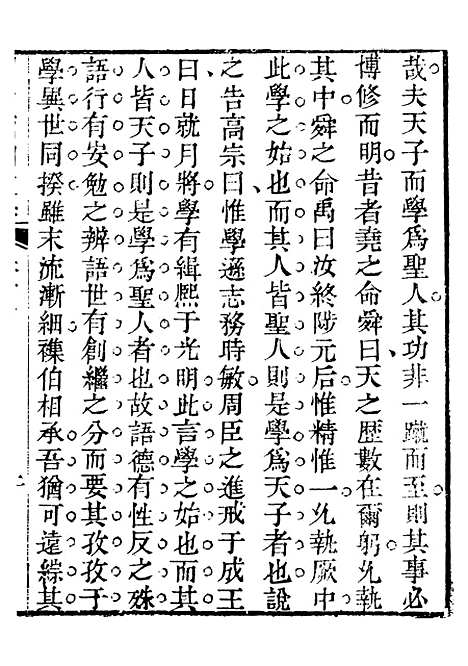 哉夫天子而學爲聖人其功非一蹴而至則其事必
博修而明昔者堯之命舜曰天之歴數在爾躬允執
其中舜之命禹曰汝終陟元后惟精惟一允執厥中
此學之始也而其人皆聖人則是學爲天子者也說
之告高宗曰惟學遜志務時敏周臣之進戒于成王
曰日就月將學有緝熙于光明此言學之始也而其
人皆天子則是學爲聖人者也故語德有性反之殊
語行有安勉之辨語世有創繼之分而要其孜孜于
學異世同揆雖末流漸細襍伯相承吾猶可遠綜其